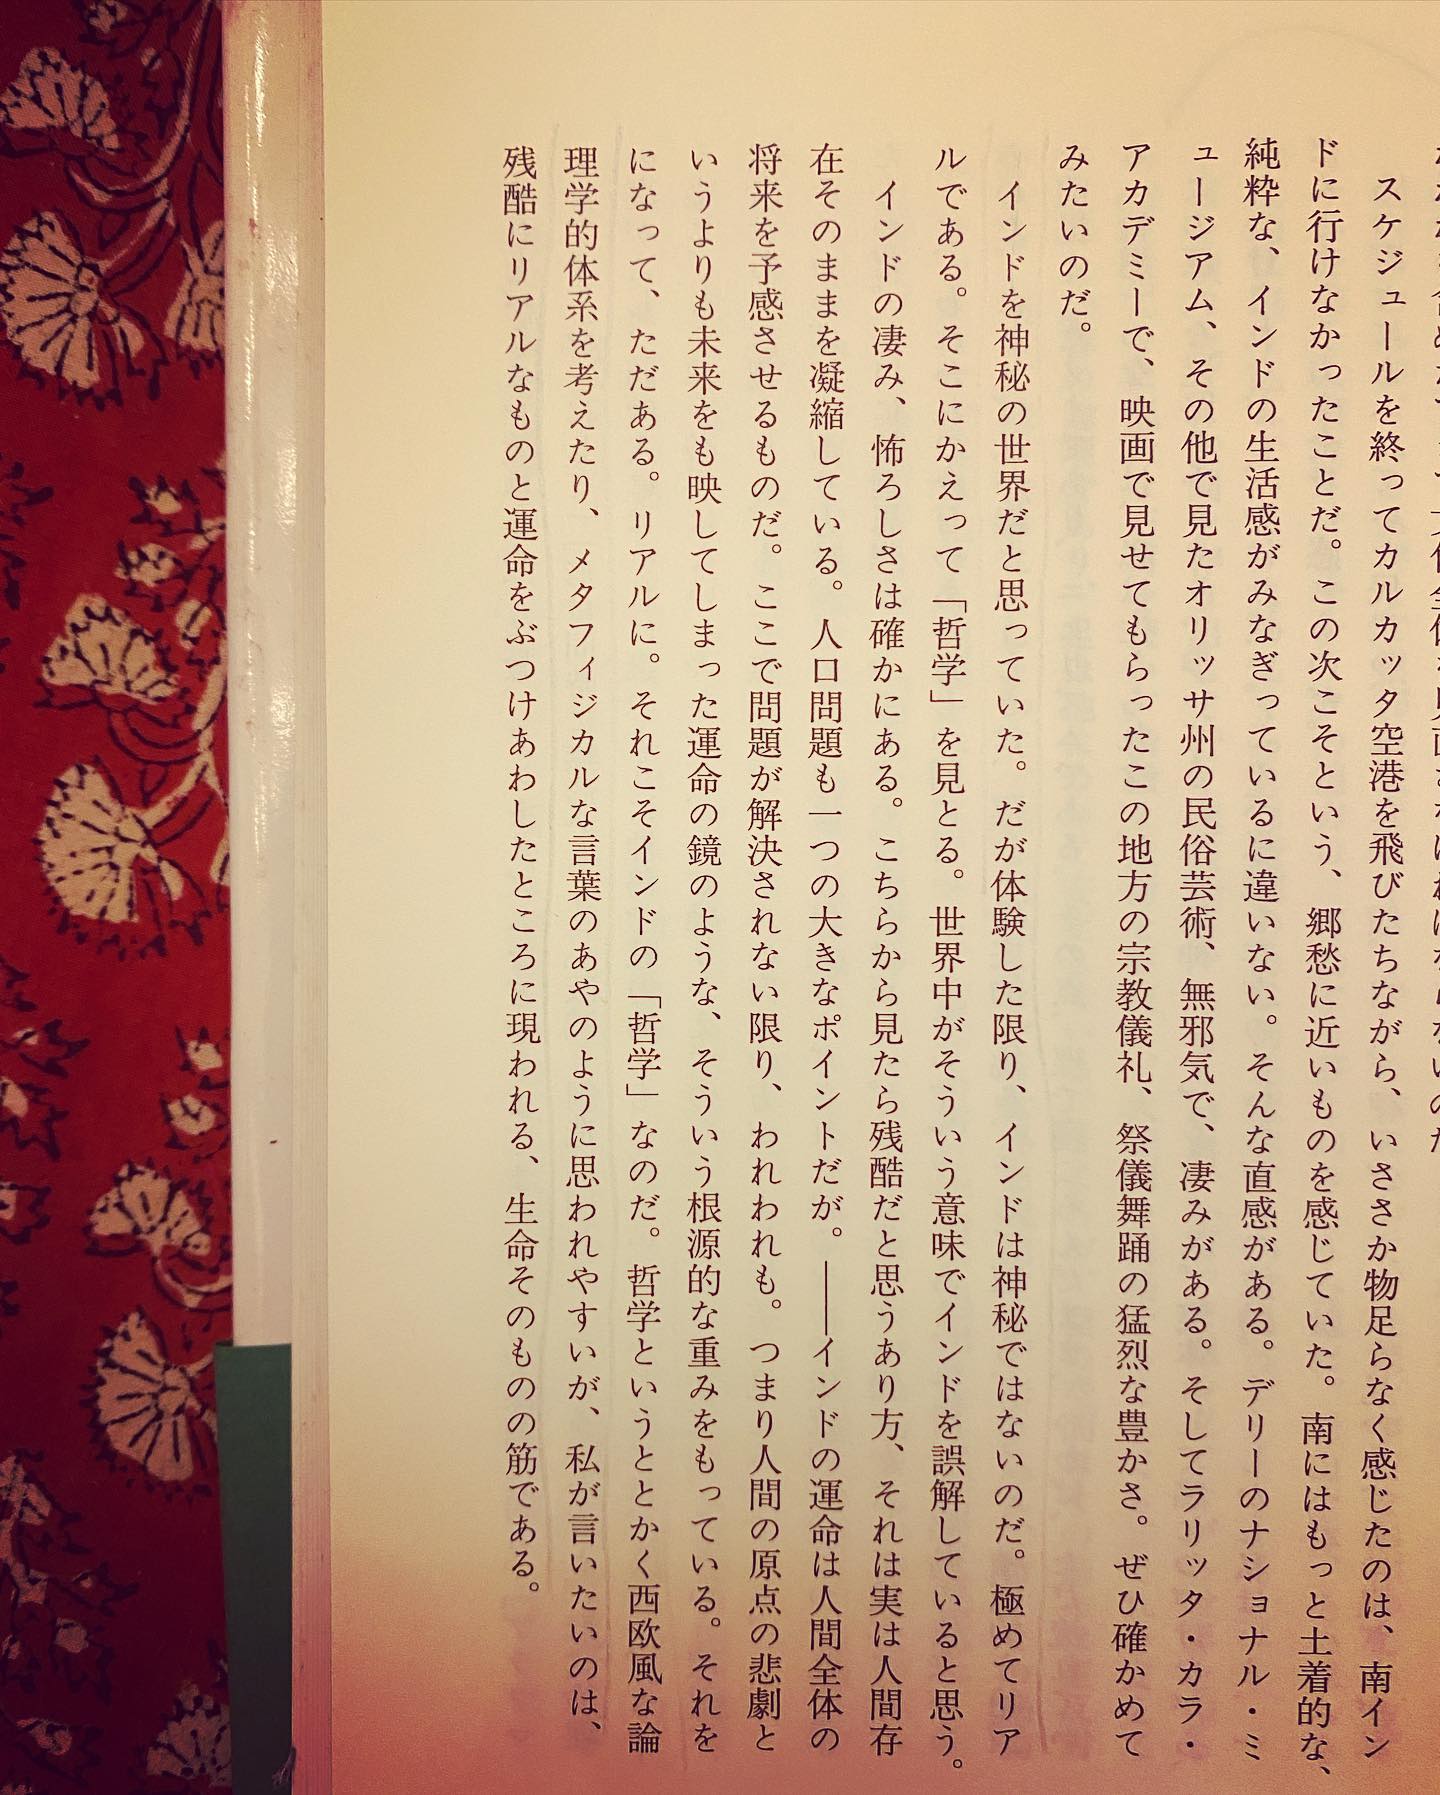 スケジュールを終ってカルカッタ空港を飛びたちながら、いささか物足らなく感じたのは、南イン
ドに行けなかったことだ。この次こそという、郷愁に近いものを感じていた。南にはもっと土着的な、
純粋な、インドの生活感がみなぎっているに違いない。そんな直感がある。デリーのナショナル・ミ
ュージアム、その他で見たオリッサ州の民俗芸術、無邪気で、凄みがある。そしてラリッタ・カラ・
アカデミーで、映画で見せてもらったこの地方の宗教儀礼、祭儀舞踊の猛烈な豊かさ。ぜひ確かめて
みたいのだ。
インドを神秘の世界だと思っていた。だが体験した限り、インドは神秘ではないのだ。極めてリア
ルである。そこにかえって「哲学」を見とる。世界中がそういう意味でインドを誤解していると思う。
インドの凄み、怖ろしさは確かにある。こちらから見たら残酷だと思うあり方、それは実は人間存
在そのままを凝縮している。人口問題も一つの大きなポイントだが。――インドの運命は人間全体の
将来を予感させるものだ。ここで問題が解決されない限り、われわれも。つまり人間の原点の悲劇と
いうよりも未来をも映してしまった運命の鏡のような、そういう根源的な重みをもっている。それを
になって、ただある。リアルに。それこそインドの「哲学」なのだ。哲学というととかく西欧風な論
理学的体系を考えたり、メタフィジカルな言葉のあやのように思われやすいが、私が言いたいのは、
残酷にリアルなものと運命をぶつけあわしたところに現われる、生命そのものの筋である。